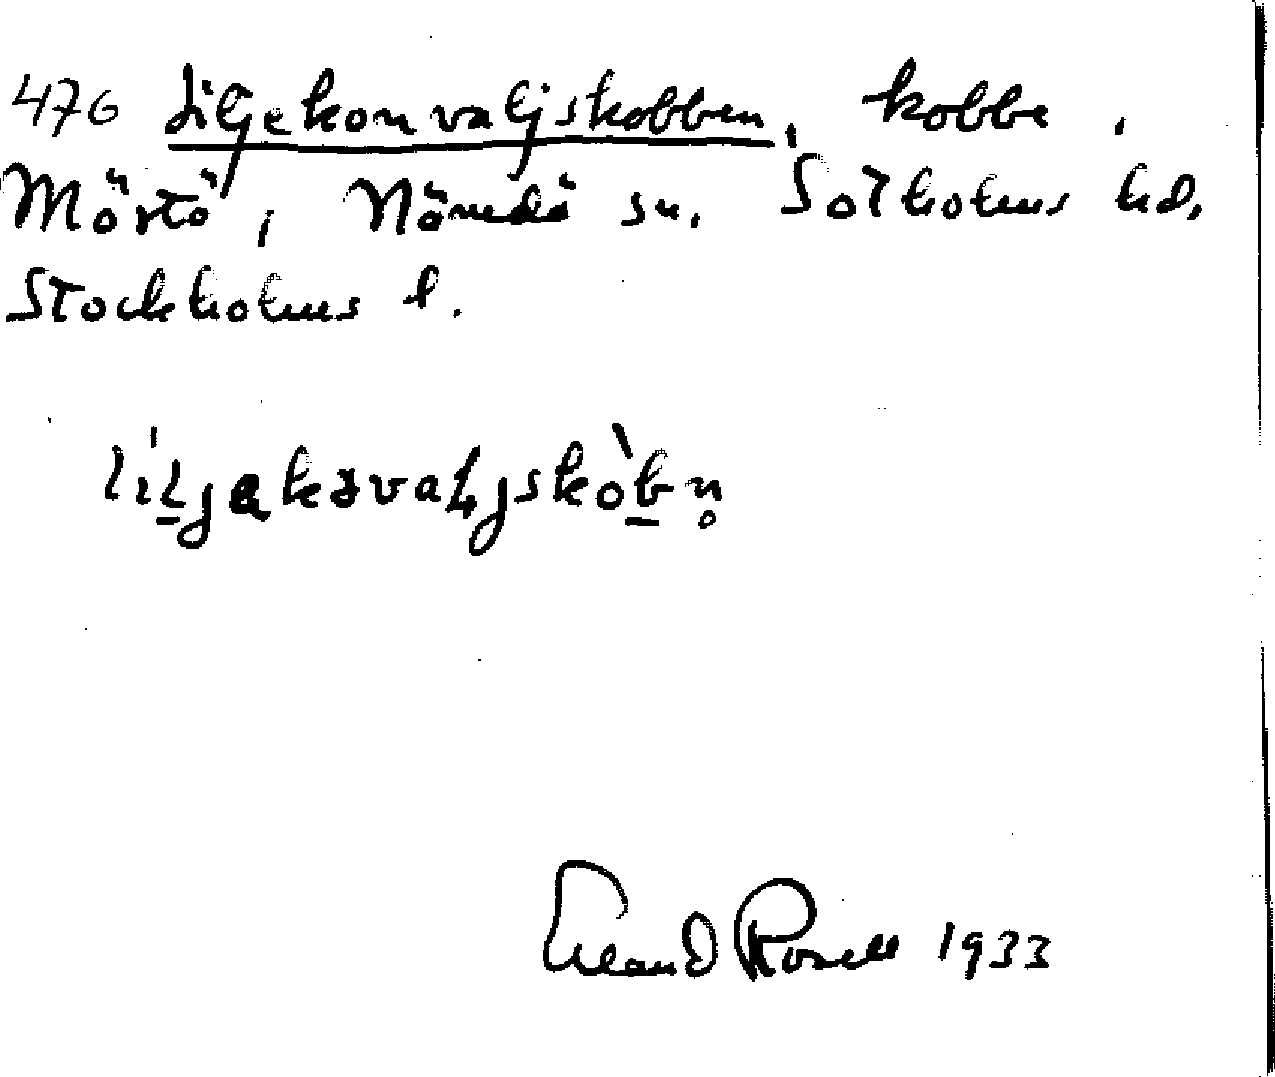 476 Liljekonvaljskobben, kobbe,
Mörtö, Nämdö sn. Sotholms hd,
Stockholms l.
Erland Rosell 1933